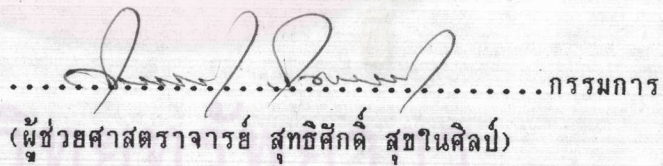 กรรมการ
(ผู้ช่วยศาสตราจารย์ สุทธิศักดิ์ สุขในศิลป์)